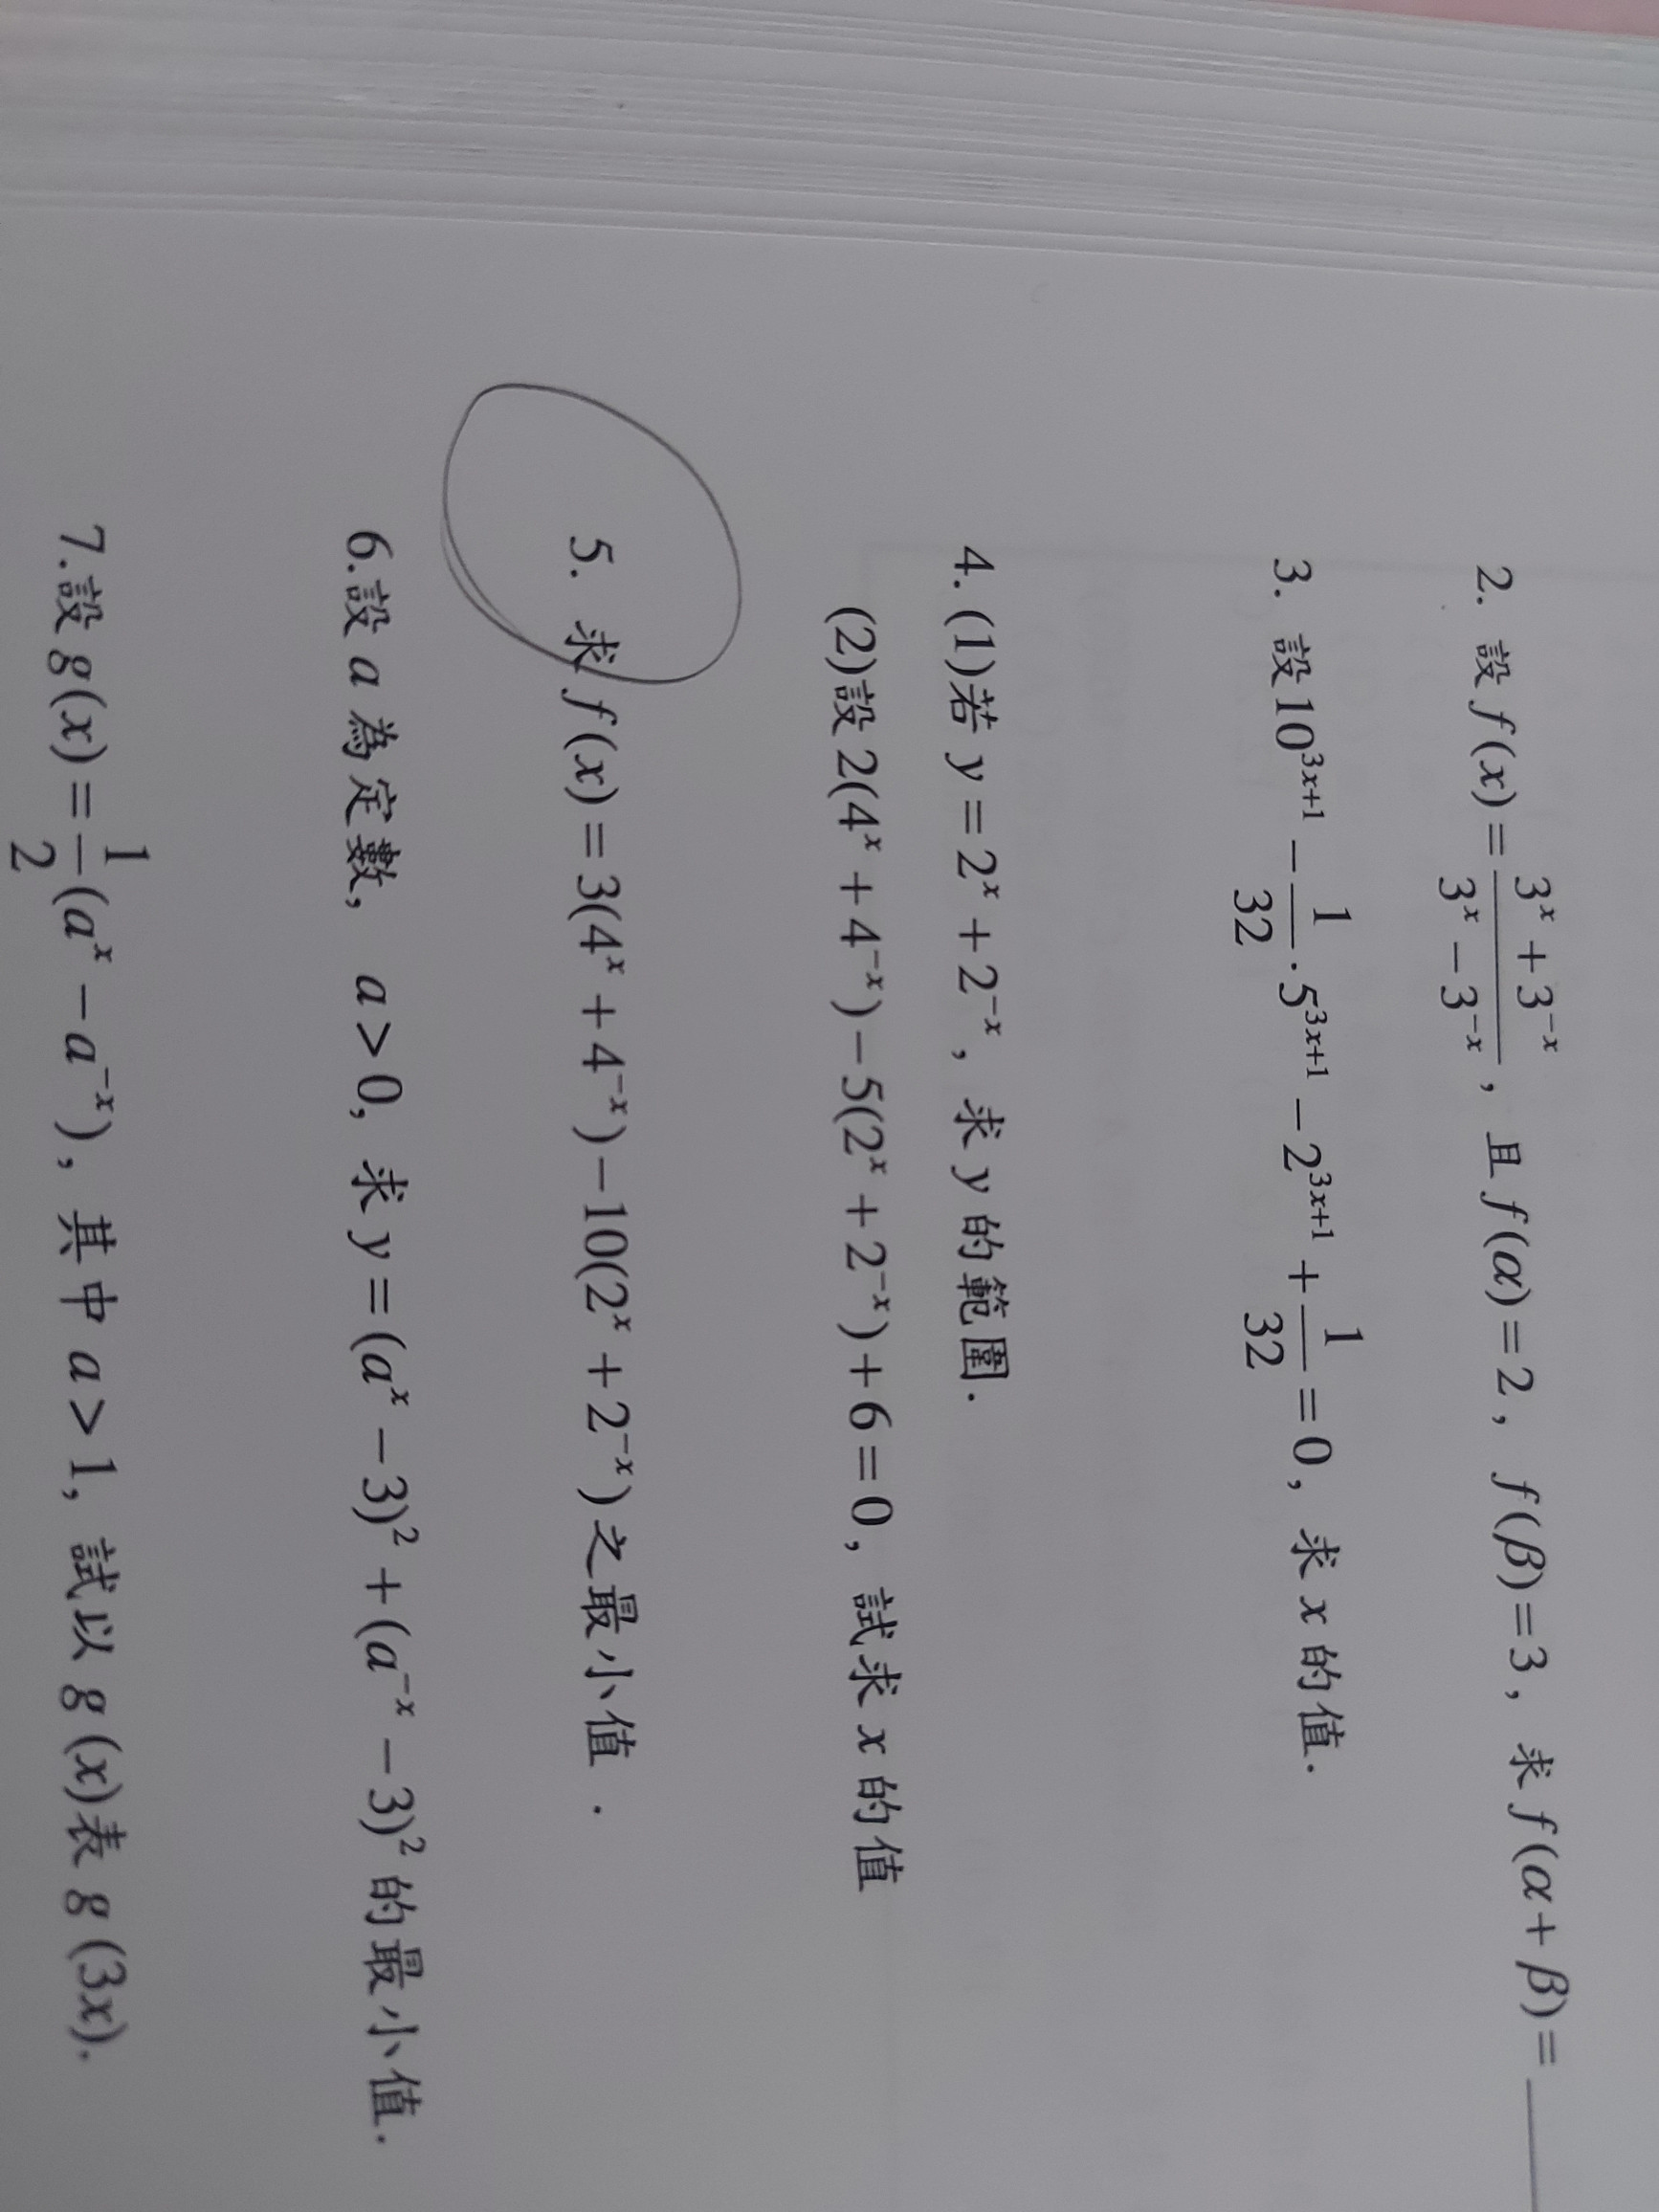 2. 設 f(x) = \frac{3^x + 3^{-x}}{3^x - 3^{-x}}, 且 f(α) = 2, f(β) = 3, 求 f(α + β) = ____
3. 設 10^{3x+1} - \frac{1}{32} · 5^{3x+1} - 2^{3x+1} + \frac{1}{32} = 0, 求 x 的值.
4. (1)若 y = 2^x + 2^{-x}, 求 y 的範圍.
(2)設 2(4^x + 4^{-x}) - 5(2^x + 2^{-x}) + 6 = 0, 試求 x 的值
5. 求 f(x) = 3(4^x + 4^{-x}) - 10(2^x + 2^{-x}) 之最小值 .
6.設 a 為定數, a > 0, 求 y = (a^x - 3)^2 + (a^{-x} - 3)^2 的最小值.
7.設 g(x) = \frac{1}{2}(a^x - a^{-x}), 其中 a > 1, 試以 g(x)表 g(3x).